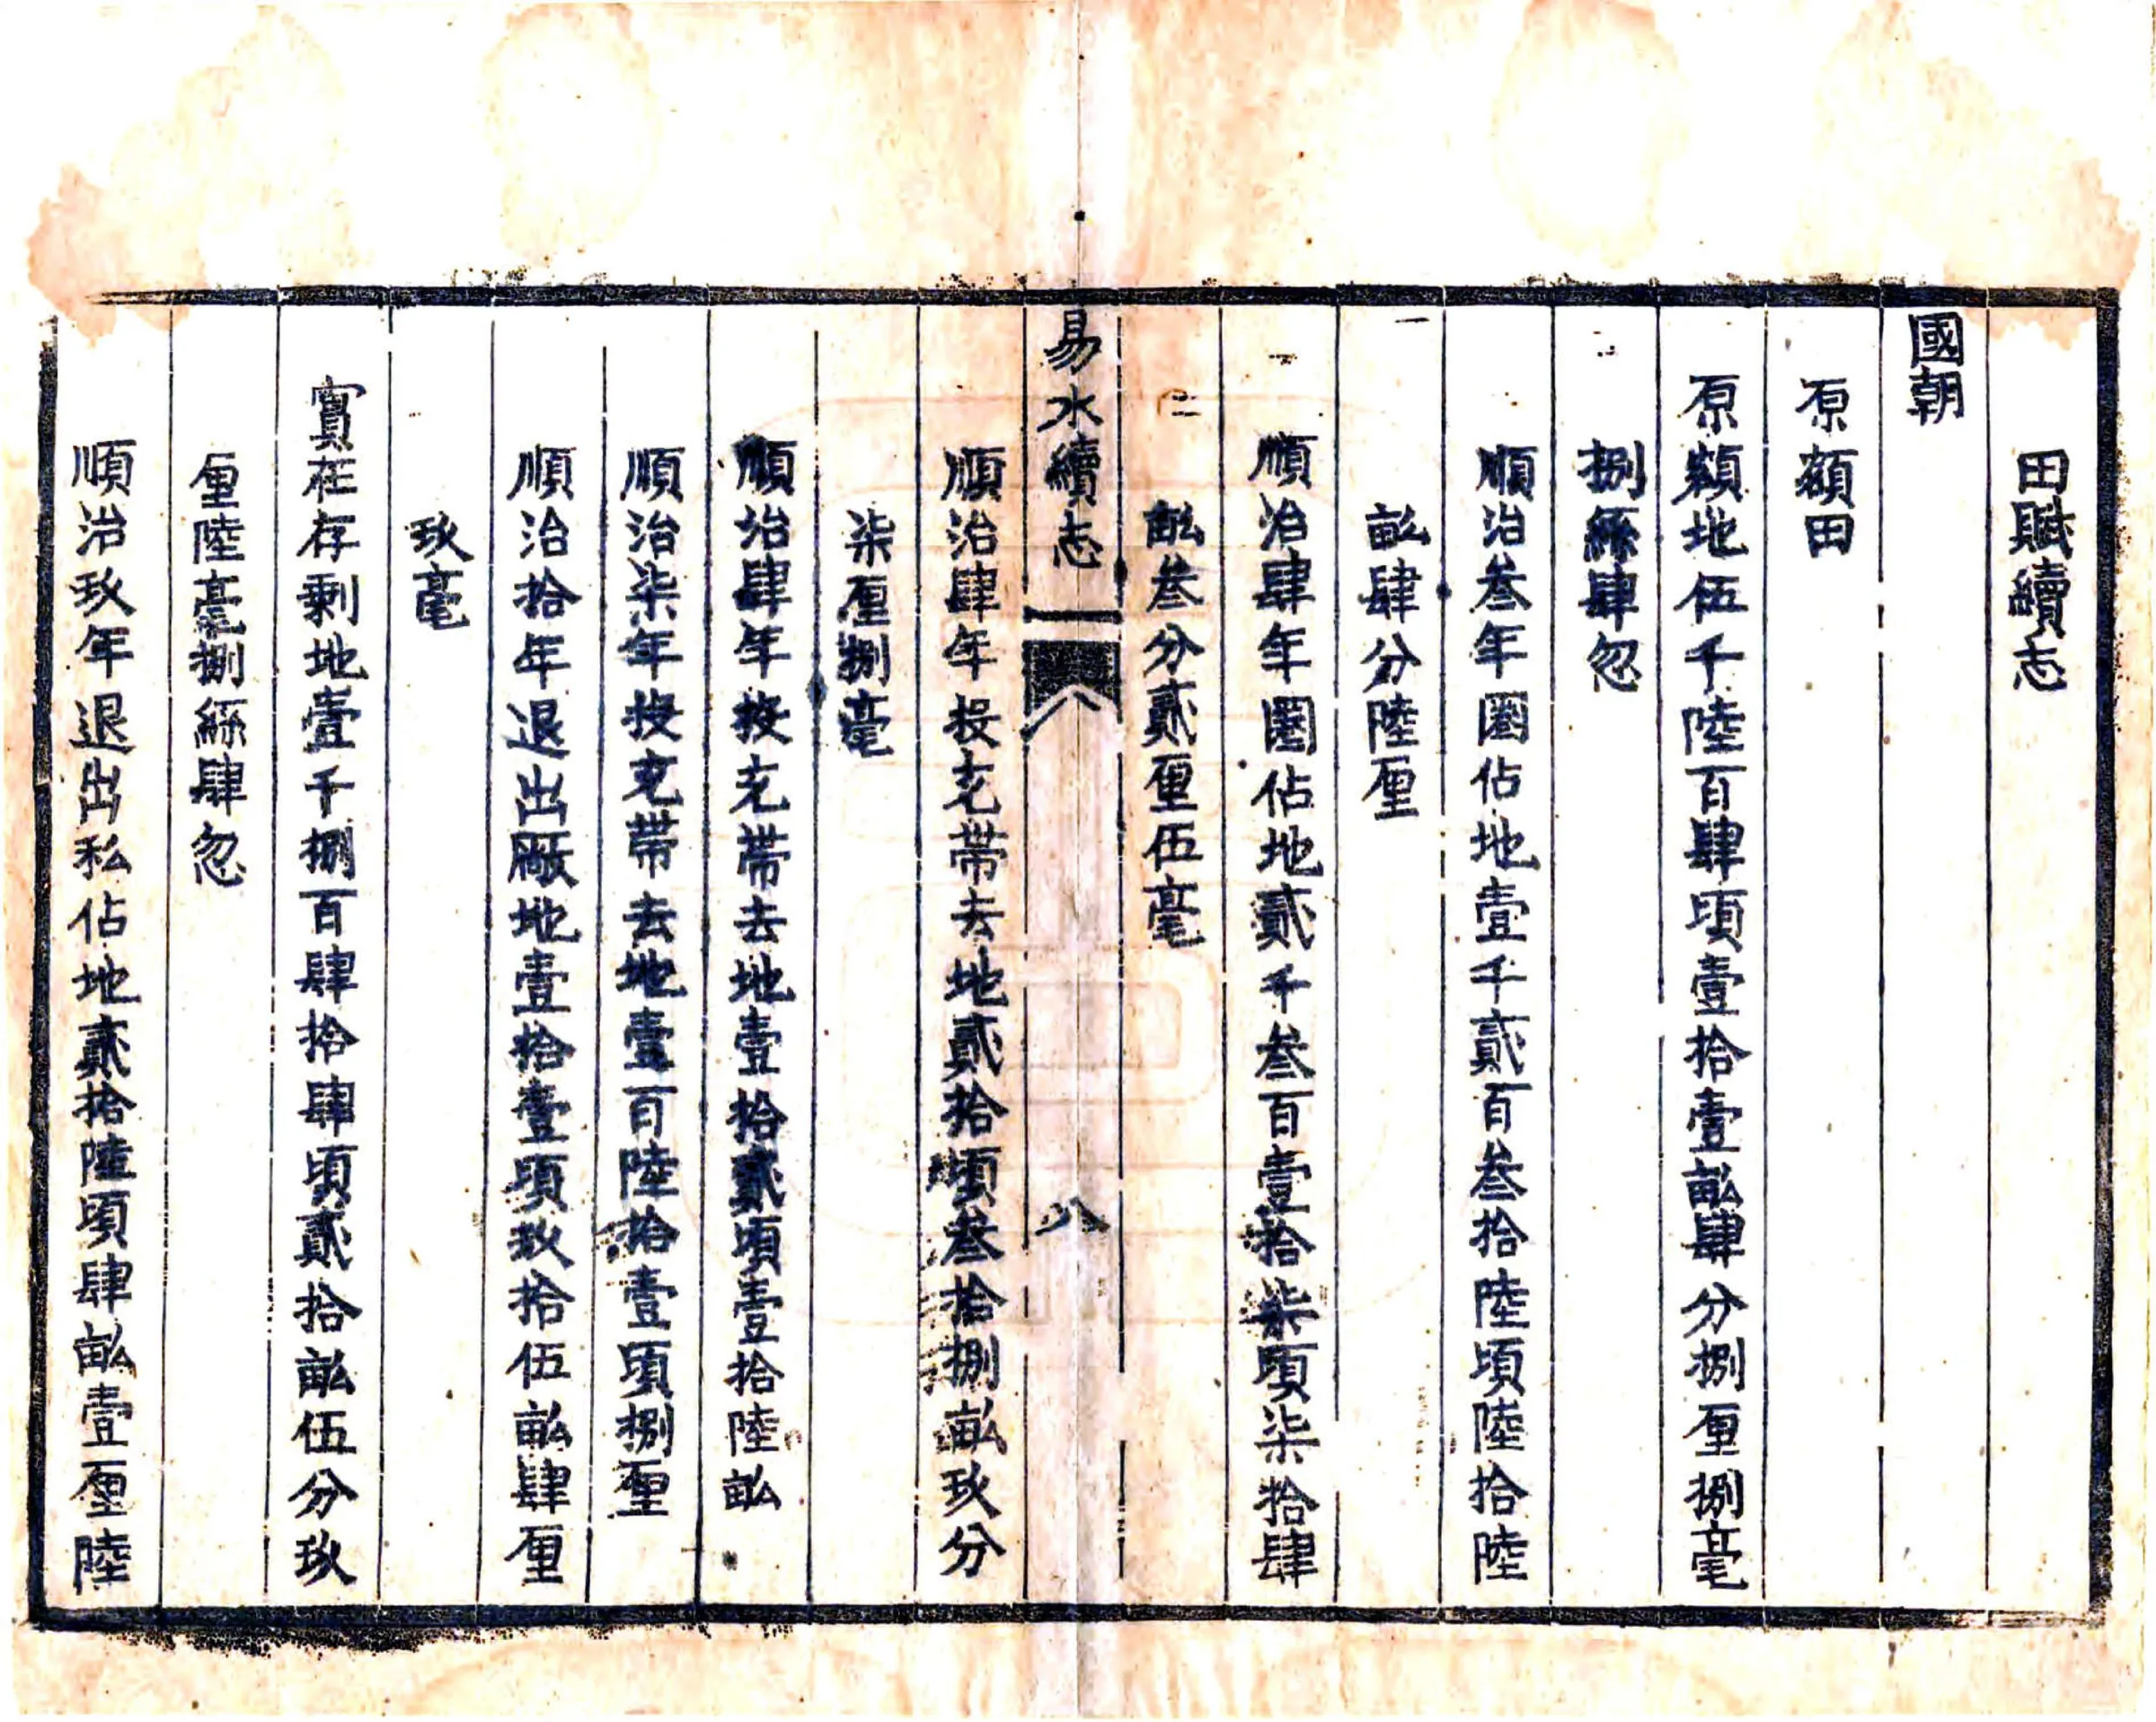 田賦續志
國朝
原額田
原額地伍千陸百肆頃壹拾壹畝肆分捌厘捌毫
捌絲肆忽
順治叁年圈佔地壹千貳百叁拾陸頃陸拾陸
畝肆分陸厘
順治肆年圈佔地貳千叁百壹拾柒頃柒拾肆
畝叁分貳厘伍毫
易水續志 八
順治肆年投充帶去地貳拾頃叁拾捌畝玖分
柒厘捌毫
順治肆年投充帶去地壹拾貳頃壹拾陸畝
順治柒年投充帶去地壹百陸拾壹頃捌厘
順治拾年退出厰地壹拾壹頃玖拾伍畝肆厘
玖毫
實在存剩地壹千捌百肆拾肆頃貳拾畝伍分玖
厘陸毫捌絲肆忽
順治玖年退出私佔地貳拾陸頃肆畝壹厘陸